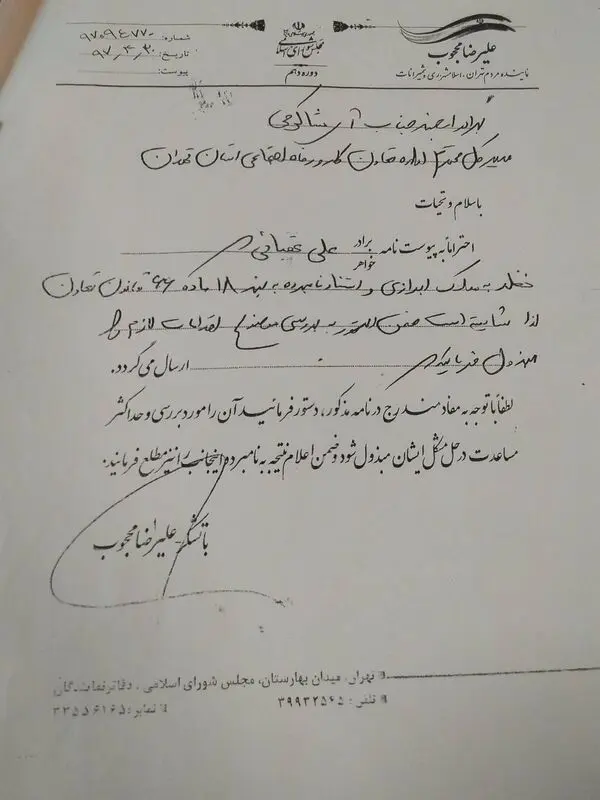 علیرضا محجوب
نماینده مردم تهران، اسلامشهر، ری و شمیرانات
مجلس شورای اسلامی
دوره دهم
شماره: ۹۷۰۹۴۷۷۰
تاریخ: ۹۷,۴,۳۰
پیوست:
برادر ارجمند جناب آقای شاکرمی
مدیر کل محترم اداره تعاون کار و رفاه اجتماعی استان تهران
با سلام و تحیات
احتراماً به پیوست نامه برادر خواهر علی عقبائی
نظر به مدارک ابرازی و استناد نامبرده به بند ۱۸ ماده ۶۶ قانون تعاون
لذا شایسته است ضمن دستور به بررسی موضوع اقدامات لازم را
مبذول فرمایید ارسال می گردد.
لطفاً با توجه به مفاد مندرج در نامه مذکور، دستور فرمائید آن را مورد بررسی و حداکثر
مساعدت در حل مشکل ایشان مبذول شود و ضمن اعلام نتیجه به نامبرده اینجانب را نیز مطلع فرمائید.
با تشکر - علیرضا محجوب
تهران، میدان بهارستان، مجلس شورای اسلامی، دفاتر نمایندگان
تلفن: ۳۹۹۳۲۵۴۵
نمابر: ۳۳۵۵۶۱۶۵